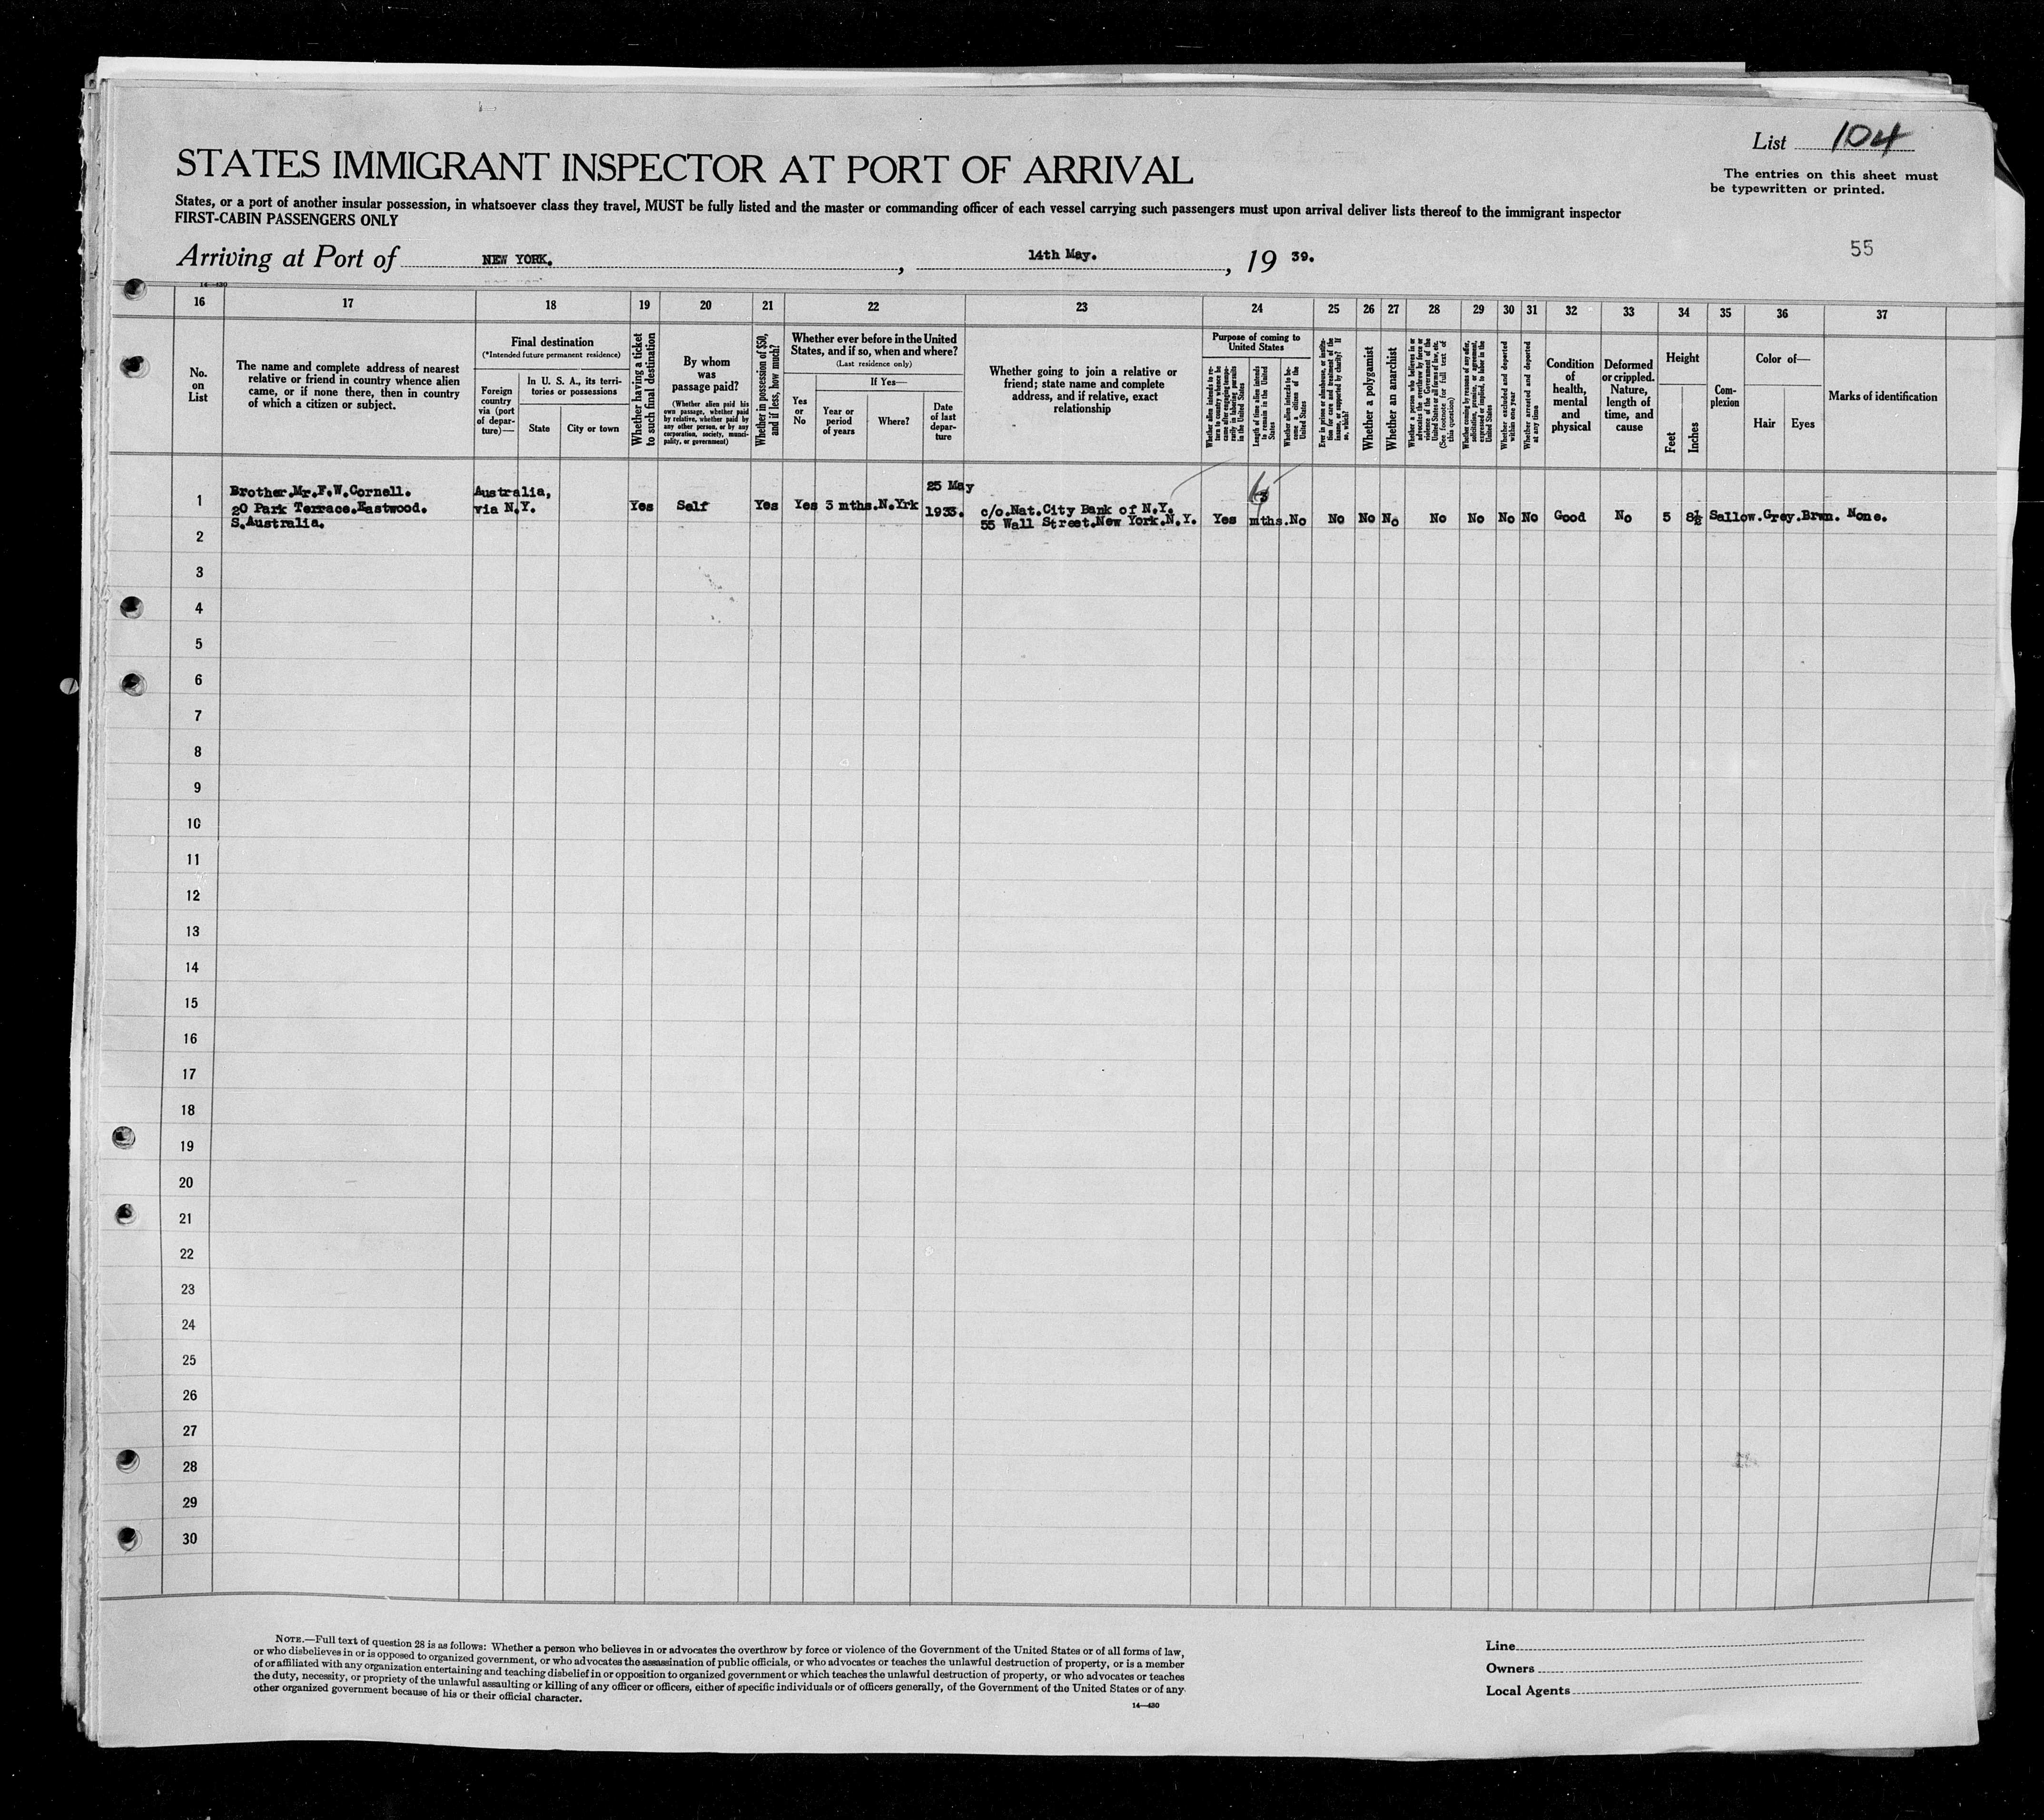 List 104
The entries on this sheet must
be typewritten or printed.
STATES IMMIGRANT INSPECTOR AT PORT OF ARRIVAL
States, or a port of another insular possession, in whatsoever class they travel, MUST be fully listed and the master or commanding officer of each vessel carrying such passengers must upon arrival deliver lists thereof to the immigrant inspector
FIRST-CABIN PASSENGERS ONLY
55
Arriving at Port of NEW YORK. , 14th May. , 19 39.
14—430
16 17 18 19 20 21 22 23 24 25 26 27 28 29 30 31 32 33 34 35 36 37
No.
on
List
The name and complete address of nearest
relative or friend in country whence alien
came, or if none there, then in country
of which a citizen or subject.
Final destination
(*Intended future permanent residence)
Foreign
country
via (port
of depar-
ture)—
In U. S. A., its terri-
tories or possessions
State
City or town
Whether having a ticket
to such final destination
By whom
was
passage paid?
(Whether alien paid his
own passage, whether paid
by relative, whether paid by
any other person, or by any
corporation, society, munici-
pality, or government)
Whether in possession of $50,
and if less, how much?
Whether ever before in the United
States, and if so, when and where?
(Last residence only)
Yes
or
No
If Yes—
Year or
period
of years
Where?
Date
of last
depar-
ture
Whether going to join a relative or
friend; state name and complete
address, and if relative, exact
relationship
Purpose of coming to
United States
Whether alien intends to re-
turn to country whence he
came after engaging tempo-
rarily in laboring pursuits
in the United States
Length of time alien intends
to remain in the United
States
Whether alien intends to be-
come a citizen of the
United States
Ever in prison or almshouse, or institu-
tion for care and treatment of the
insane, or supported by charity? If
so, which?
Whether a polygamist
Whether an anarchist
Whether a person who believes in or
advocates the overthrow by force or
violence of the Government of the
United States or all forms of law, etc.
(See footnote for full text of
this question)
Whether coming by reason of any offer,
solicitation, promise, or agreement,
expressed or implied, to labor in the
United States
Whether excluded and deported
within one year
Whether arrested and deported
at any time
Condition
of
health,
mental
and
physical
Deformed
or crippled.
Nature,
length of
time, and
cause
Height
Feet
Inches
Com-
plexion
Color of—
Hair
Eyes
Marks of identification
1
Brother.Mr.F.W.Cornell.
20 Park Terrace.Eastwood.
S.Australia.
Australia,
via N.Y.
Yes
Self
Yes
Yes 3 mths.N.Yrk
25 May
1933.
c/o.Nat.City Bank of N.Y.
55 Wall Street.New York.N.Y.
Yes
3
mths.No
No No No No No No No Good No 5 8½ Sallow.Grey.Brwn. None.
2
3
4
5
6
7
8
9
10
11
12
13
14
15
16
17
18
19
20
21
22
23
24
25
26
27
28
29
30
NOTE.—Full text of question 28 is as follows: Whether a person who believes in or advocates the overthrow by force or violence of the Government of the United States or of all forms of law,
or who disbelieves in or is opposed to organized government, or who advocates the assassination of public officials, or who advocates or teaches the unlawful destruction of property, or is a member
of or affiliated with any organization entertaining and teaching disbelief in or opposition to organized government or which teaches the unlawful destruction of property, or who advocates or teaches
the duty, necessity, or propriety of the unlawful assaulting or killing of any officer or officers, either of specific individuals or of officers generally, of the Government of the United States or of any
other organized government because of his or their official character.
14—430
Line
Owners
Local Agents